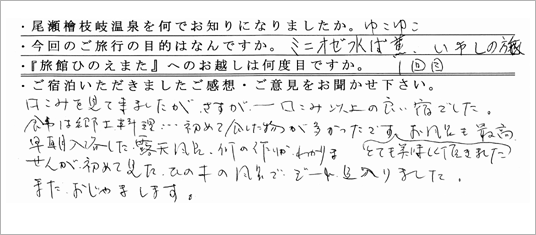 ・尾瀬檜枝岐温泉を何でお知りになりましたか。ゆこゆこ
・今回のご旅行の目的はなんですか。ミニオゼ水ば蕉、いやしの旅
・『旅館ひのえまた』へのお越しは何度目ですか。1回目
・ご宿泊いただきましたご感想・ご意見をお聞かせ下さい。
口こみを見て来ましたが、さすが―口こみ以上の良い宿でした。
食事は郷土料理…初めて食した物が多かったです。お風呂も最高
とても美味しく頂きました
早朝入浴した露天風呂、何の作りかわかりま
せんが、初めて見た、ひの木の風呂で、見入りました。
また、おじゃまします。